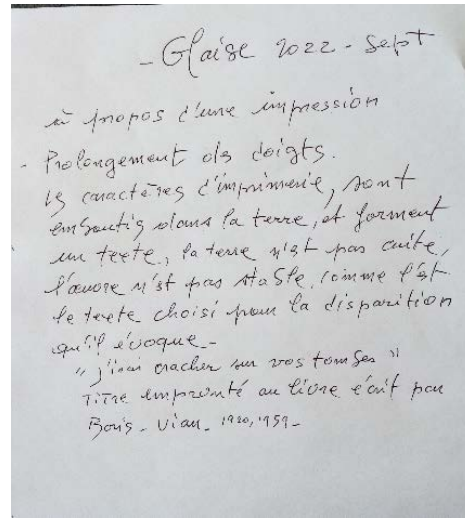 - Glaise 2022 - Sept
à propos d'une impression
- Prolongement des doigts.
les caractères d'imprimerie, sont
emboutis dans la terre, et forment
un texte, la terre n'est pas cuite,
l'œuvre n'est pas stable, comme l'est
le texte choisi pour la disparition
qu'il évoque -
" j'irai cracher sur vos tombes "
TITRE emprunté au livre écrit par
Boris - Vian - 1920, 1959 -